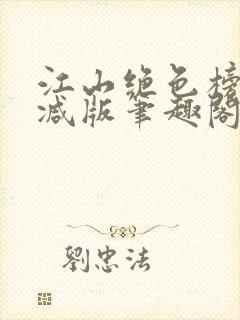 江山绝色榜
减版笔趣阁
劉忠法